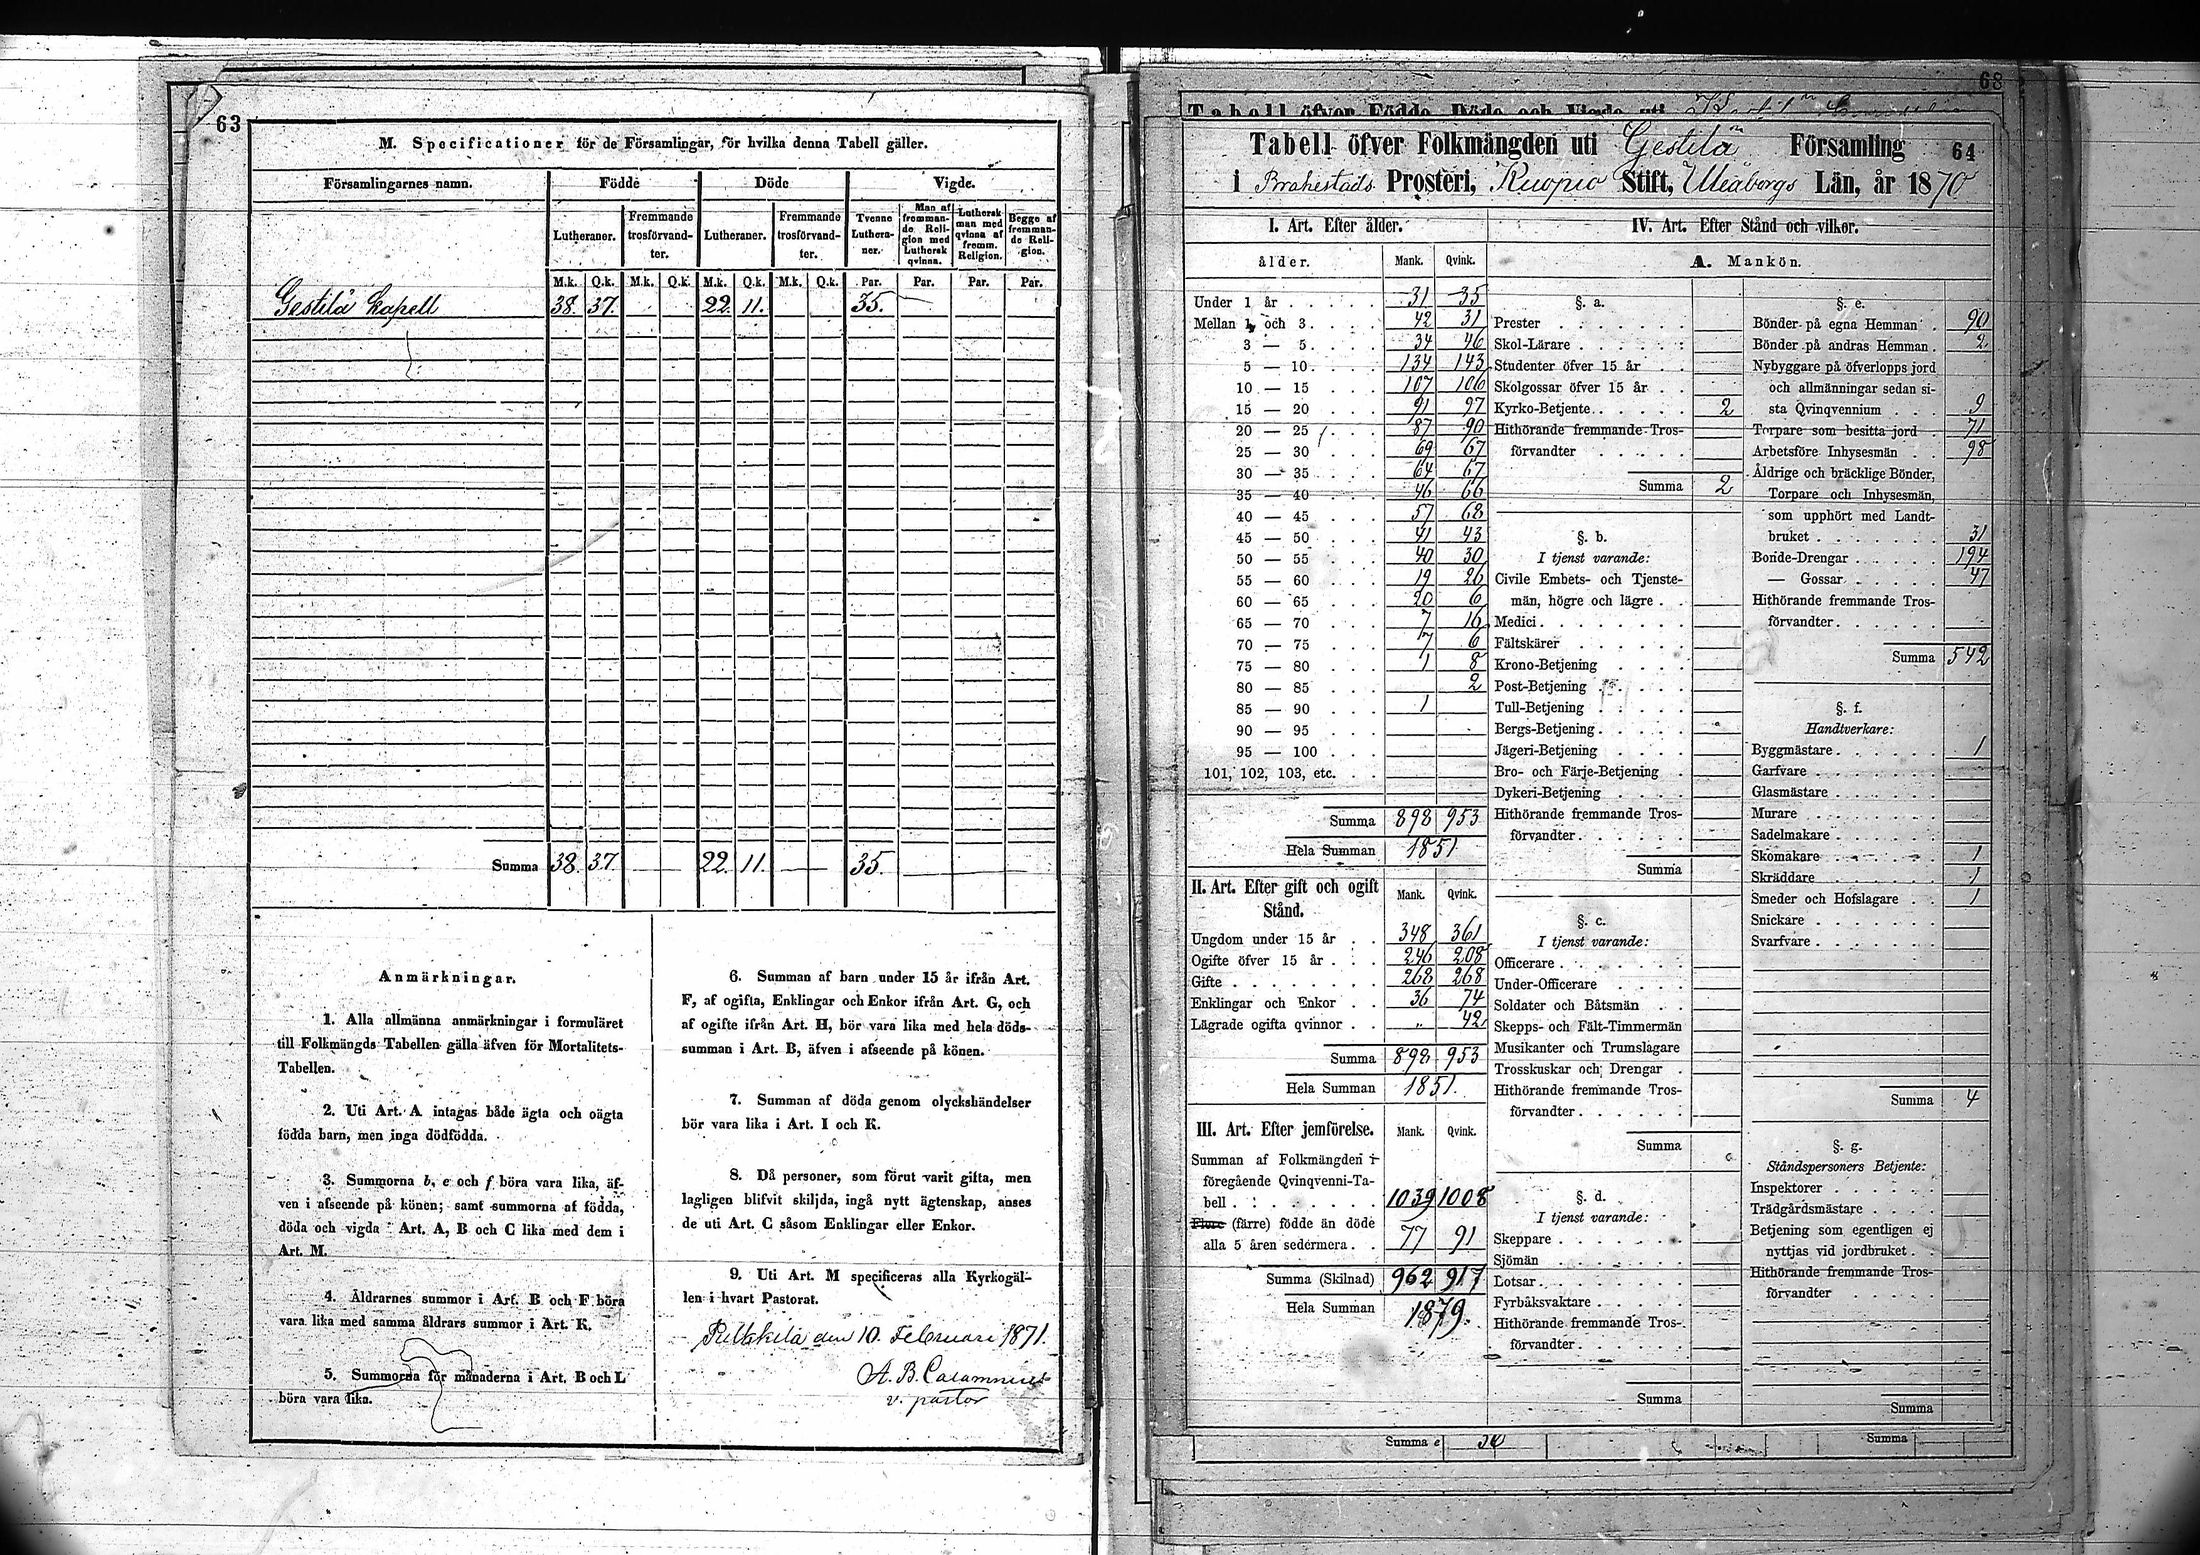 63
M. Specificationer för de Församlingar, för hvilka denna Tabell gäller.
Församlingarnes namn. Födde Döde Vigde.
Lutheraner. Fremmande trosförvandter. Lutheraner. Fremmande trosförvandter. Tvenne Lutheraner. Man af fremmande Religion med Luthersk qvinna. Luthersk man med qvinna af fremm. Religion. Begge af fremmande Religion.
M.k. Q.k. M.k. Q.k. M.k. Q.k. M.k. Q.k. Par. Par. Par. Par.
Gestilä Kapell 38. 37. 22. 11. 35.
Summa 38. 37. 22. 11. 35.
Anmärkningar.
1. Alla allmänna anmärkningar i formuläret
till Folkmängds Tabellen gälla äfven för Mortalitets-
Tabellen.
2. Uti Art. A intagas både ägta och oägta
födda barn, men inga dödfödda.
3. Summorna b, e och f böra vara lika, äf-
ven i afseende på könen; samt summorna af födda,
döda och vigda i Art. A, B och C lika med dem i
Art. M.
4. Åldrarnes summor i Art. B och F böra
vara lika med samma åldrars summor i Art. K.
5. Summorna för månaderna i Art. B och L
böra vara lika.
6. Summan af barn under 15 år ifrån Art.
F, af ogifta, Enklingar och Enkor ifrån Art. G, och
af ogifte ifrån Art. H, bör vara lika med hela döds-
summan i Art. B, äfven i afseende på könen.
7. Summan af döda genom olyckshändelser
bör vara lika i Art. I och K.
8. Då personer, som förut varit gifta, men
lagligen blifvit skiljda, ingå nytt ägtenskap, anses
de uti Art. C såsom Enklingar eller Enkor.
9. Uti Art. M specificeras alla Kyrkogäl-
len i hvart Pastorat.
Pulkkila den 10. Februari 1871.
v. pastor
68
Tabell öfver Födde, Döde och Vigde uti
Tabell öfver Folkmängden uti Gestilä Församling 64
i Brahestads Prosteri, Kuopio Stift, Uleåborgs Län, år 1870
I. Art. Efter ålder.
ålder. Mank. Qvink.
Under 1 år 31 35
Mellan 1 och 3 42 31
3 — 5 34 46
5 — 10 134 143
10 — 15 107 106
15 — 20 91 97
20 — 25 87 90
25 — 30 69 67
30 — 35 64 67
35 — 40 46 66
40 — 45 57 68
45 — 50 41 43
50 — 55 40 30
55 — 60 19 26
60 — 65 20 6
65 — 70 7 16
70 — 75 7 6
75 — 80 1 8
80 — 85 2
85 — 90 1
90 — 95
95 — 100
101, 102, 103, etc.
Summa 898 953
Hela Summan 1851
II. Art. Efter gift och ogift Stånd. Mank. Qvink.
Ungdom under 15 år 348 361
Ogifte öfver 15 år 246 208
Gifte 268 268
Enklingar och Enkor 36 74
Lägrade ogifta qvinnor „ 42
Summa 898 953
Hela Summan 1851.
III. Art. Efter jemförelse. Mank. Qvink.
Summan af Folkmängden i
föregående Qvinqvenni-Ta-
bell 1039 1008
Flere (färre) födde än döde
alla 5 åren sedermera 77 91
Summa (Skilnad) 962 917
Hela Summan 1879.
IV. Art. Efter Stånd och vilkor.
A. Mankön.
§. a.
Prester
Skol-Lärare
Studenter öfver 15 år
Skolgossar öfver 15 år
Kyrko-Betjente 2
Hithörande fremmande Tros-
förvandter
Summa 2
§. b.
I tjenst varande:
Civile Embets- och Tjenste-
män, högre och lägre
Medici
Fältskärer
Krono-Betjening
Post-Betjening
Tull-Betjening
Bergs-Betjening
Jägeri-Betjening
Bro- och Färje-Betjening
Dykeri-Betjening
Hithörande fremmande Tros-
förvandter
Summa
§. c.
I tjenst varande:
Officerare
Under-Officerare
Soldater och Båtsmän
Skepps- och Fält-Timmermän
Musikanter och Trumslagare
Trosskuskar och Drengar
Hithörande fremmande Tros-
förvandter
Summa
§. d.
I tjenst varande:
Skeppare
Sjömän
Lotsar
Fyrbåksvaktare
Hithörande fremmande Tros-
förvandter
Summa
§. e.
Bönder på egna Hemman 90
Bönder på andras Hemman 2
Nybyggare på öfverlopps jord
och allmänningar sedan si-
sta Qvinqvennium 9
Torpare som besitta jord 71
Arbetsföre Inhysesmän 98
Åldrige och bräcklige Bönder,
Torpare och Inhysesmän,
som upphört med Landt-
bruket 31
Bonde-Drengar 194
— Gossar 47
Hithörande fremmande Tros-
förvandter
Summa 542
§. f.
Handtverkare:
Byggmästare 1
Garfvare
Glasmästare
Murare
Sadelmakare
Skomakare 1
Skräddare 1
Smeder och Hofslagare 1
Snickare
Svarfvare
Summa 4
§. g.
Ståndspersoners Betjente:
Inspektorer
Trädgårdsmästare
Betjening som egentligen ej
nyttjas vid jordbruket
Hithörande fremmande Tros-
förvandter
Summa
Summa e Summa